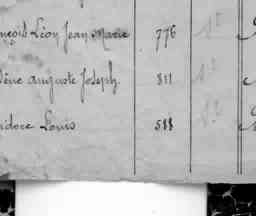 ançois Léon Jean Marie 776 1°
Père Auguste Joseph. 811 1°
sidore Louis 588 1°